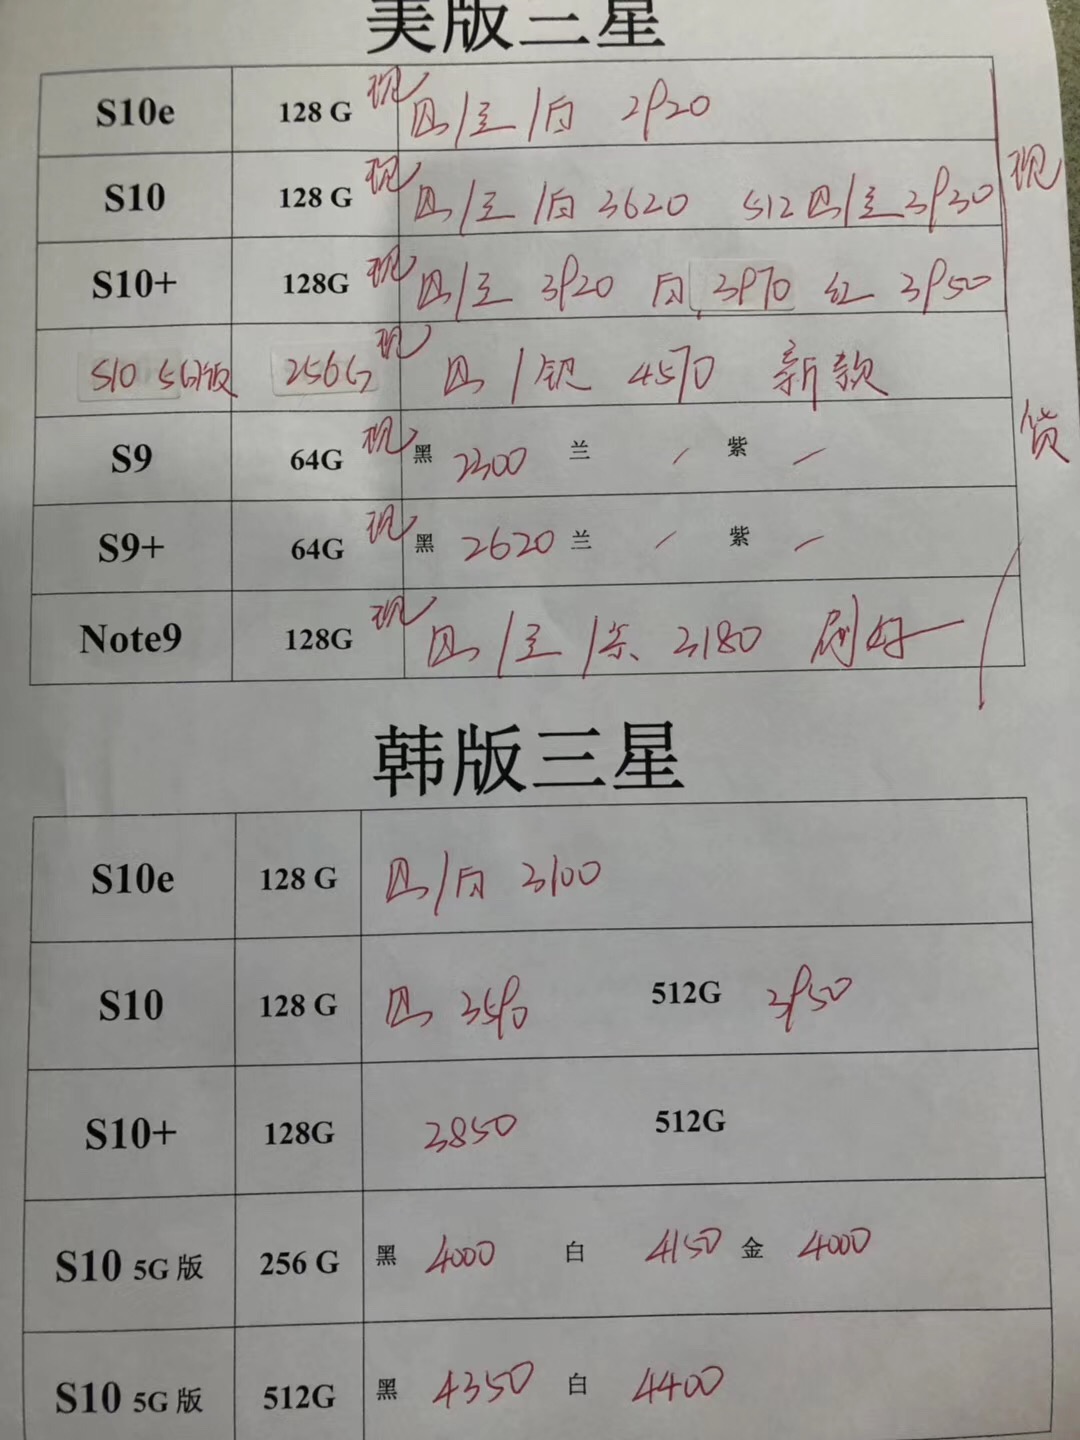 美版三星
S10e 128 G 现 黑/兰/白 2920
S10 128 G 现 黑/兰/白 3620 512 黑/兰 3930
S10+ 128G 现 黑/兰 3920 白 3970 红 3950
S10 5G版 256G 现 黑/银 4570 新款
S9 64G 现 黑 2300 兰 / 紫 /
S9+ 64G 现 黑 2620 兰 / 紫 /
Note9 128G 现 黑/兰/紫 3180 刷好
现
货
韩版三星
S10e 128 G 黑/白 3100
S10 128 G 黑 3590 512G 3950
S10+ 128G 3850 512G
S10 5G 版 256 G 黑 4000 白 4150 金 4000
S10 5G 版 512G 黑 4350 白 4400